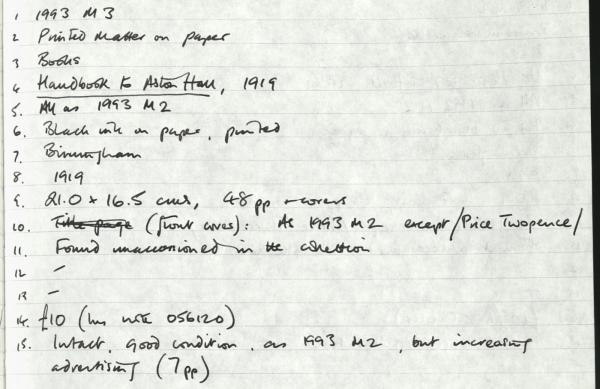 1 1993 M 3
2 Printed matter on paper
3 Books
4 Handbook to Aston Hall, 1919
5. All as 1993 M2
6. Black ink on paper, printed
7. Birmingham
8. 1919
9. 21.0 x 16.5 cms, 48pp + covers
10. Title page (front cover): As 1993 M2 except /Price Twopence/
11. Found unaccessioned in the collection
12 –
13 –
14. £10 (ins note 056120)
15. Intact, good condition, as 1993 M2, but increasing
advertising (7pp)